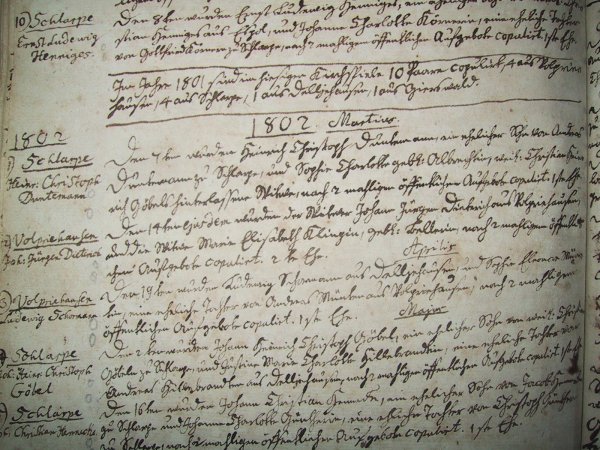 10) Schlarpe
Ernst Ludewig
Henniges.
Den 8ten wurden Ernst Ludewig Henniges, ein
stian Henniges aus und Johanne Charlotte eine eheliche Tochter
von Gottfried zu Schlarpe, nach 2 mahligen öffentlichen Aufgebote copulirt. 1ste Ehe.
Im Jahre 1801 sind im hiesigen Kirchspiele 10 Paare copulirt, 4 aus Volprie
hausen, 4 aus Schlarpe, 1 aus Delljehausen, 1 aus Gierswald.
1802
1802. Martius.
1) Schlarpe
Heinr: Christoph
Duntemann
Den 7ten wurden Heinrich Christoph Duntemann, ein ehelicher Sohn von Andreas
Duntemann zu Schlarpe, und Sophie Charlotte gebt: weil: Christian
rich Göbels hinterlassene Witwe, nach 2 mahligen öffentlichen Aufgebote copulirt. 1ste Ehe
2) Volpriehausen
Joh: Jürgen Dieterich
Den 14ten ejusdem wurden der Witwer Johann Jürgen Dieterich aus Volpriehausen,
und die Witwe Marie Elisabeth gebt: nach 2 mahligen öffentli
chen Aufgebote copulirt. 2te Ehe.
Aprilis
3) Volpriehausen
Ludewig Schormann
Den 19ten wurden Ludewig Schormann aus Delljehausen und Sophie Eleonore
eine eheliche Tochter von Andreas aus Volpriehausen, nach 2 mahligen
öffentlichen Aufgebote copulirt. 1ste Ehe.
Majus
4) Schlarpe
Joh: Heinr: Christoph
Göbel
Den 2ten wurden Johann Heinrich Christoph Göbel, ein ehelicher Sohn von weil: Christian
Göbeln zu Schlarpe und Justine Marie Charlotte Hillebrandten, eine eheliche Tochter von
Andreas Hillebrandten aus Delljehausen, nach 2 mahligen öffentlichen Aufgebote copulirt. 1ste Ehe
5) Schlarpe
Joh: Christian
Den 16ten wurden Johann Christian ein ehelicher Sohn von Jacob
zu Schlarpe und Johanne Charlotte eine eheliche Tochter von Christoph
zu Schlarpe, nach 2 mahligen öffentlichen Aufgebote copulirt. 1ste Ehe.